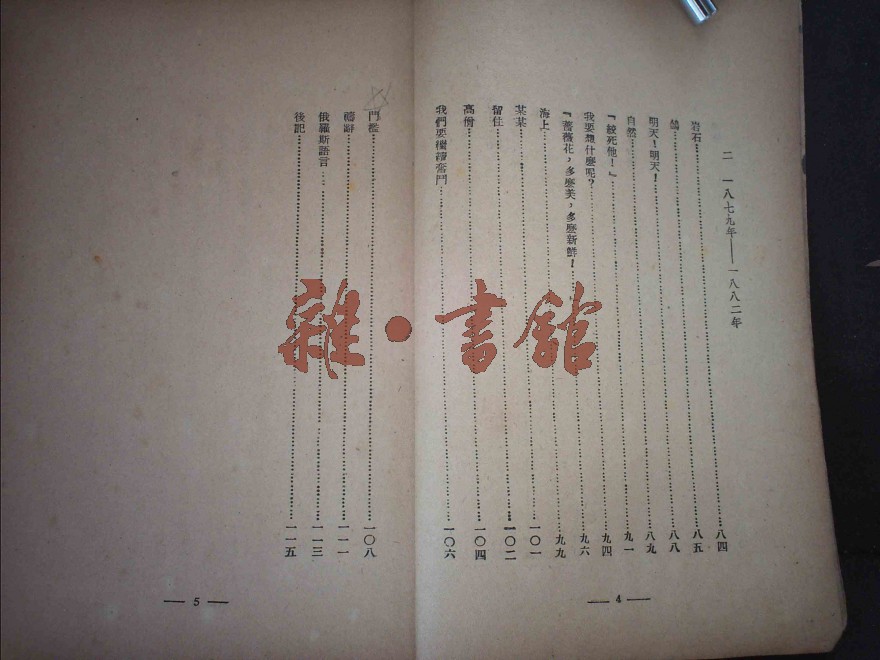 二 一八七九年——一八八二年
岩石……八四
鴿……八五
明天！明天！……八八
自然……八九
『絞死他！』……九一
我要想什麼呢？……九四
『薔薇花，多麼美，多麼新鮮！……九六
海上……九九
某某……一〇一
留住……一〇二
高僧……一〇四
我們要繼續奮鬥……一〇六
— 4 —
門檻……一〇八
禱辭……一一一
俄羅斯語言……一一三
後記……一一五
— 5 —
雜·書館